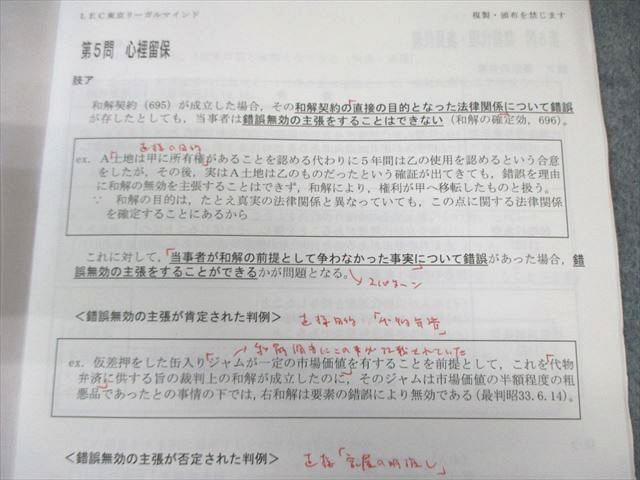 LEC東京リーガルマインド
複製・頒布を禁じます
第5問 心裡留保
肢ア
和解契約（695）が成立した場合，その和解契約の直接の目的となった法律関係について錯誤
が存したとしても，当事者は錯誤無効の主張をすることはできない（和解の確定効，696）。
直接の目的
ex. A土地は甲に所有権があることを認める代わりに5年間は乙の使用を認めるという合意
をしたが，その後，実はA土地は乙のものだったという確証が出てきても，錯誤を理由
に和解の無効を主張することはできず，和解により，権利が甲へ移転したものと扱う。
∵ 和解の目的は，たとえ真実の法律関係と異なっていても，この点に関する法律関係
を確定することにあるから
これに対して，「当事者が和解の前提として争わなかった事実について錯誤があった場合，錯
誤無効の主張をすることができるかが問題となる。
2パターン
＜錯誤無効の主張が肯定された判例＞
直接目的
ex. 仮差押をした缶入りジャムが一定の市場価値を有することを前提として，これを「代物
弁済に供する旨の裁判上の和解が成立したのに，そのジャムは市場価値の半額程度の粗
悪品であったとの事情の下では，右和解は要素の錯誤により無効である（最判昭33.6.14）。
＜錯誤無効の主張が否定された判例＞
直接「家屋の明渡し」